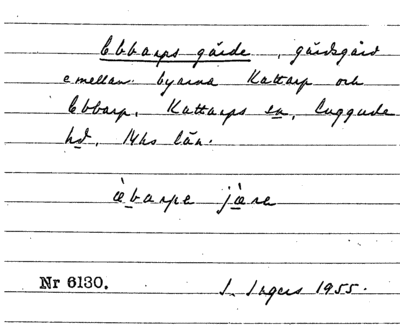 Ebbarps gärde, gärdsgård
emellan byarna Kattarp och
Ebbarp, Kattarps sn, Luggude
hd, Mhs län.
àbarpa jæra
Nr 6130. I. Ingers 1955.